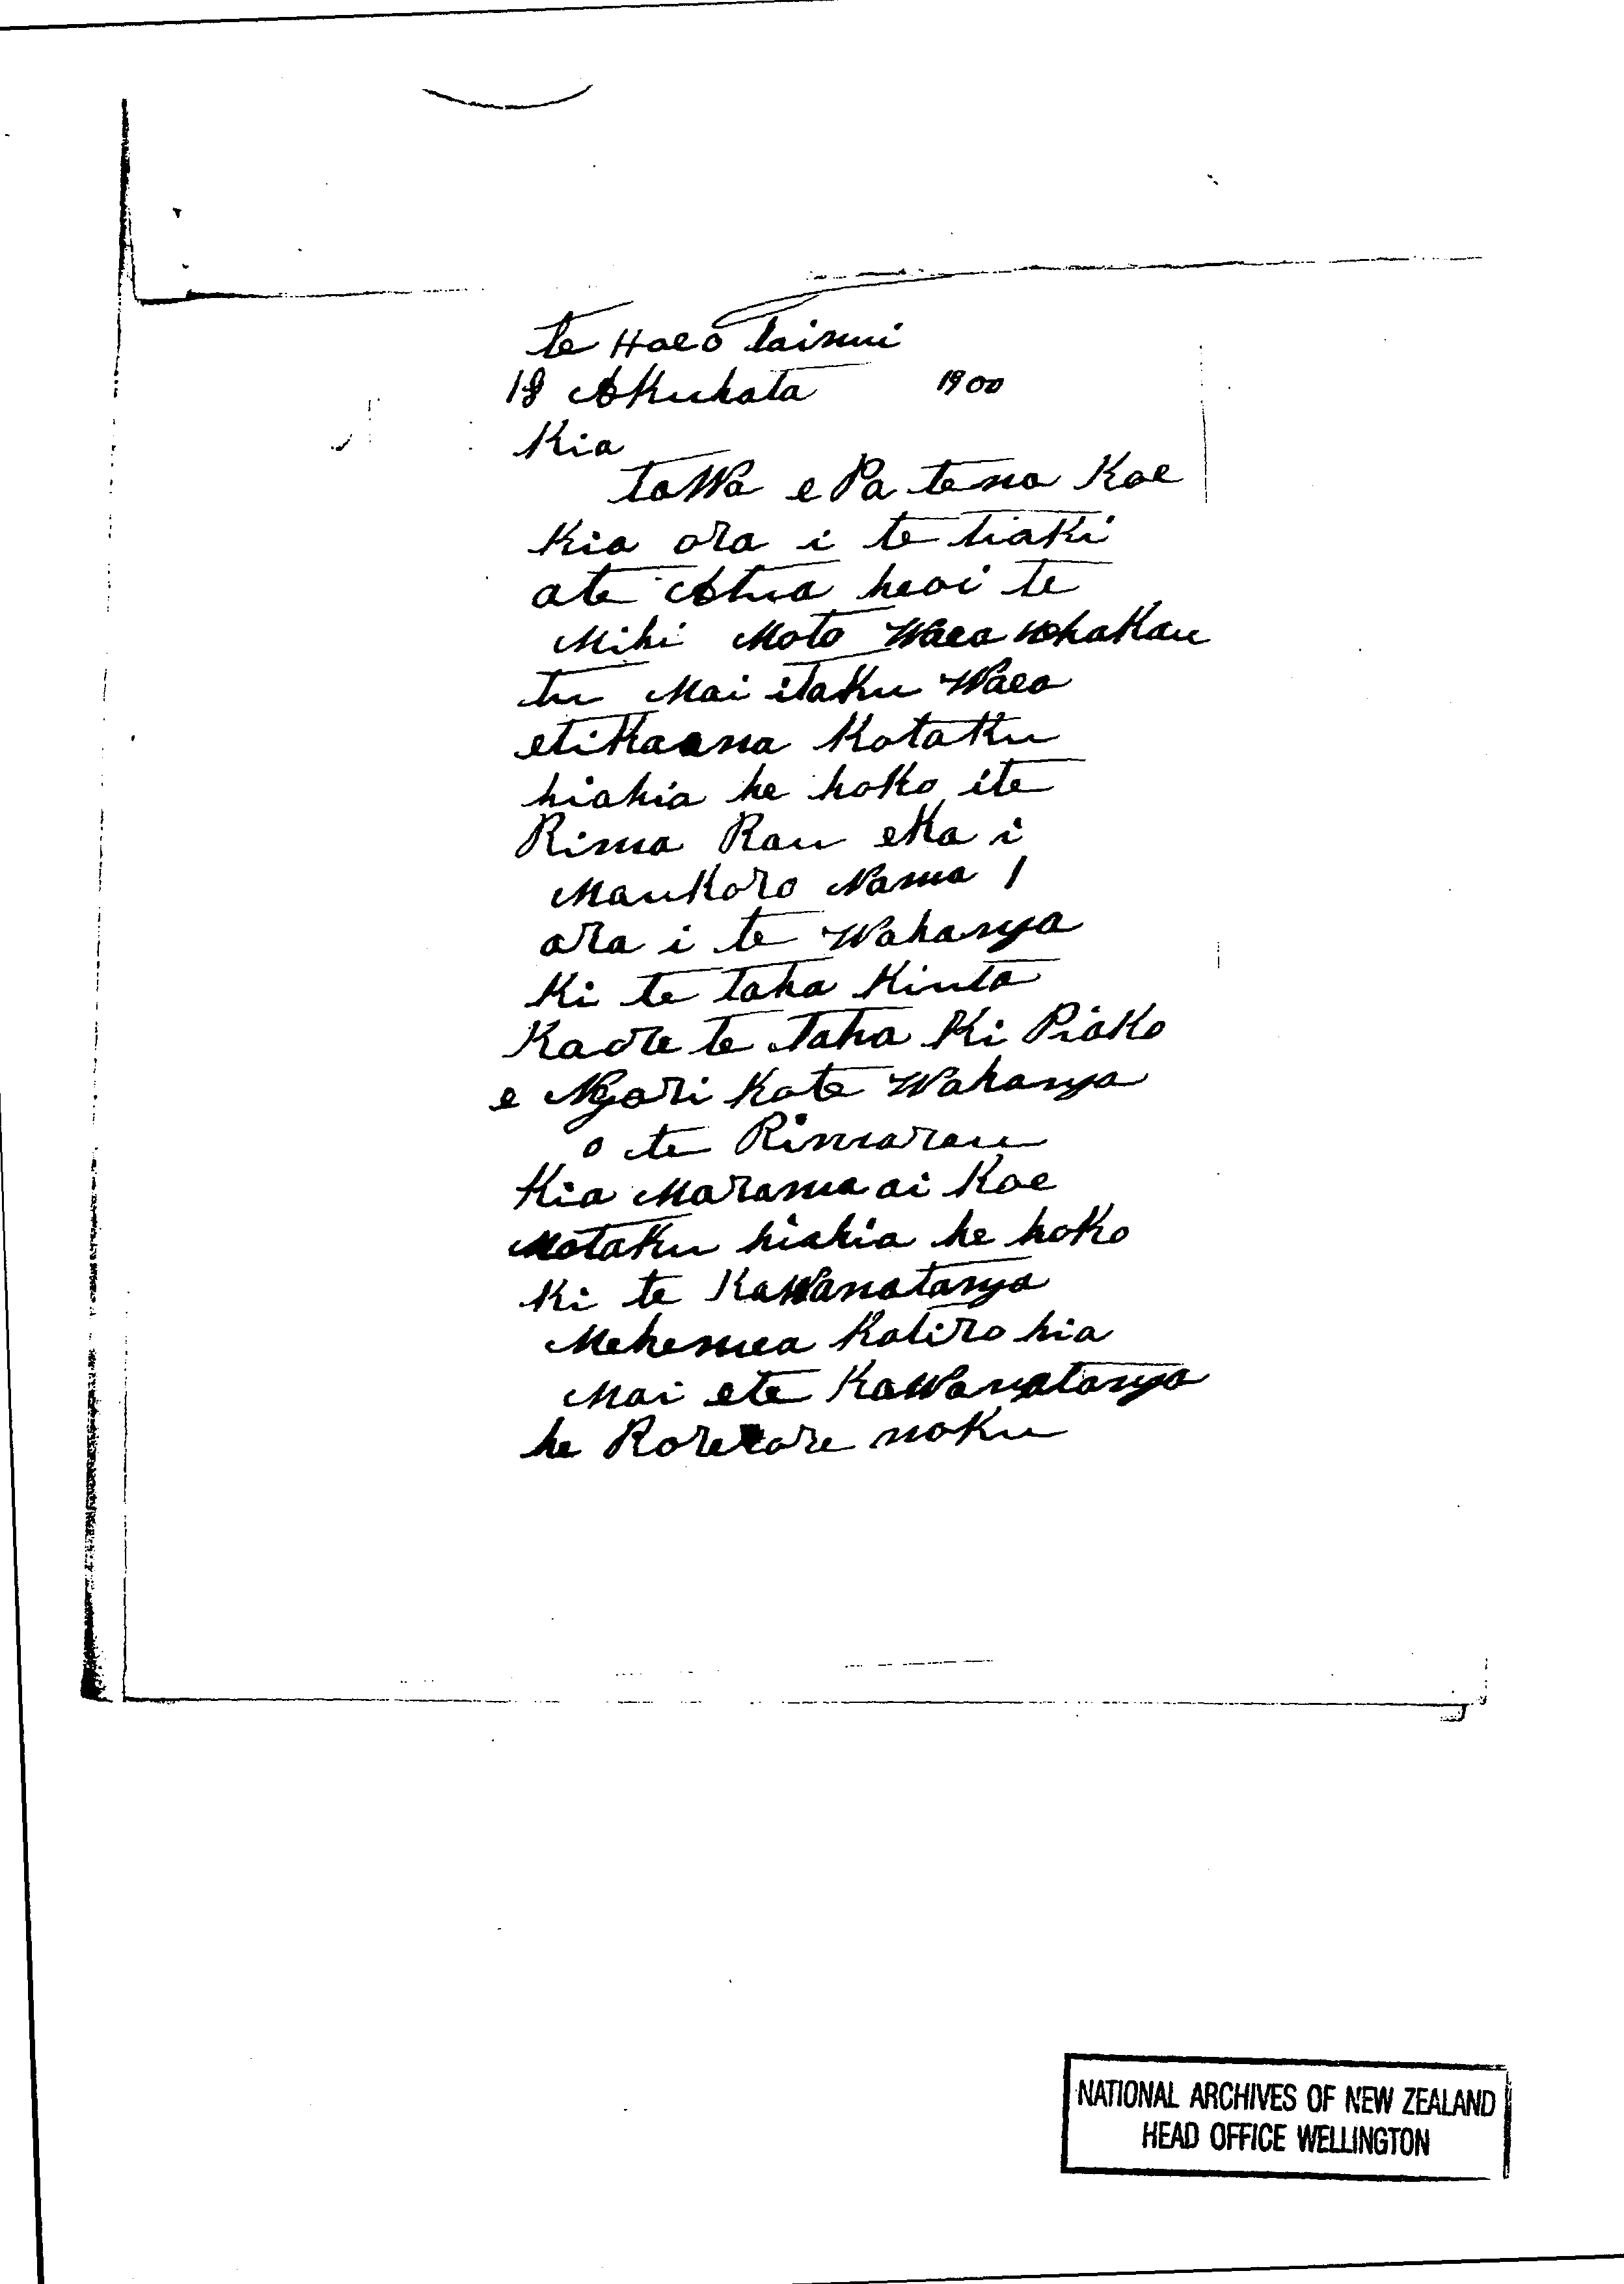 te Hoe o Tainui
18 Akuhata 1900
Kia
taWa e Pa tena Koe
Kia ora i te tiaki
ate Atua heoi te
Mihi Moto Waea whakau
tu Mai itaku Waea
etikaana Kotaku
hiahia he hoko ite
Rima Rau eka i
Maukoro Nama 1
ara i te Wahanga
Ki te taha Kiuta
Kaore te Taha Ki Piako
e Ngari Kote Wahanga
o te Rimarau
Kia Marama ai Koe
Motaku hiahia he hoko
Ki te KaWanatanga
Mehemea Katiro hia
Mai ete KaWanatanga
he Rorerore noku
NATIONAL ARCHIVES OF NEW ZEALAND
HEAD OFFICE WELLINGTON